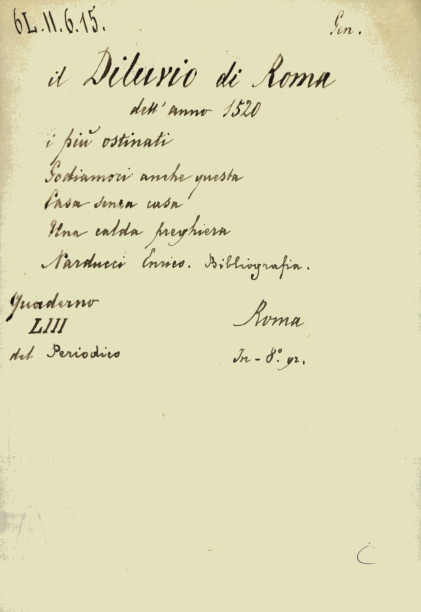 6L.11.6.15.
Gen.
il Diluvio di Roma
dell' anno 1520
i più ostinati
Godiamoci anche questa
Casa senza casa
Una calda preghiera
Narducci Enrico. Bibliografia.
Quaderno
LIII
del Periodico
Roma
In-8° gr.
C